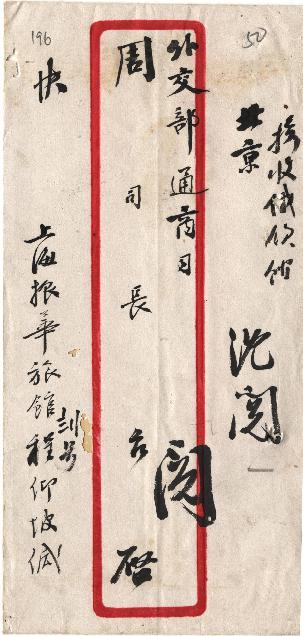 196
50
接收俄使馆
北京
沈阅
外交部通商司
周司長台啓
阅
快
上海振華旅館程仰坡缄